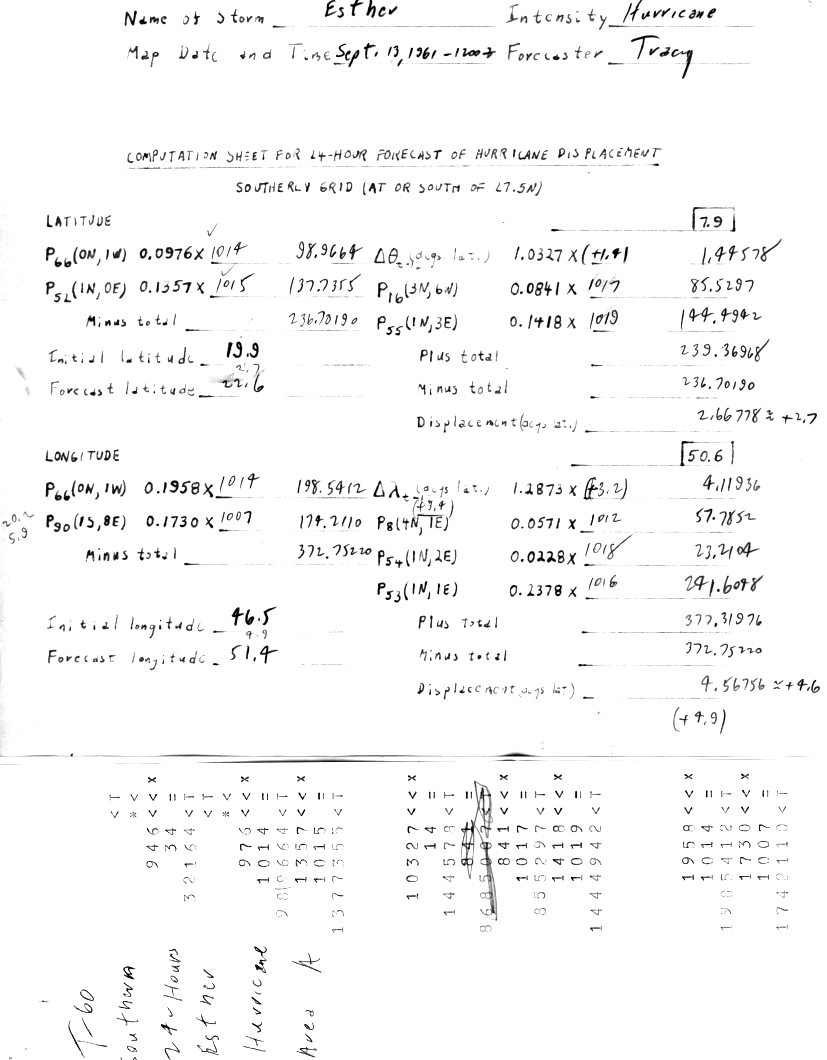 Name of Storm Esther Intensity Hurricane
Map Date and Time Sept. 13, 1961 - 1200z Forecaster Tracy
COMPUTATION SHEET FOR 24-HOUR FORECAST OF HURRICANE DISPLACEMENT
SOUTHERLY GRID (AT OR SOUTH OF 27.5N)
LATITUDE 7.9
P66(0N, 1W) 0.0976 X 1014 98.9664 Δθt-1(degs lat.) 1.0327 X (+1.4) 1.44578
P52(1N, 0E) 0.1357 X 1015 137.7355 P16(3N, 6W) 0.0841 X 1017 85.5297
Minus total 236.70190 P55(1N, 3E) 0.1418 X 1019 144.4942
Initial latitude 19.9 Plus total 239.36968
2.7
Forecast latitude 22.6 Minus total 236.70190
Displacement (degs lat.) 2.66778 ≈ +2.7
LONGITUDE 50.6
P66(0N, 1W) 0.1958 X 1014 198.5412 Δλt-1(degs lat.) 1.2873 X (+3.2) 4.11936
(+3.4)
20.2
5.9
P90(1S, 8E) 0.1730 X 1007 174.2110 P8(4N, 1E) 0.0571 X 1012 57.7852
Minus total 372.75220 P54(1N, 2E) 0.0228 X 1018 23.2104
P53(1N, 1E) 0.2378 X 1016 241.6048
Initial longitude 46.5 Plus Total 377.31976
4.9
Forecast longitude 51.4 Minus total 372.75220
Displacement (degs lat) 4.56756 ≈ +4.6
(+4.9)
< T
* <
9 4 6 < < X
3 4 =
3 2 1 6 4 < T
< T
* <
9 7 6 < < X
1 0 1 4 =
9 8 9 6 6 4 < T
1 3 5 7 < < X
1 0 1 5 =
1 3 7 7 3 5 5 < T
1 0 3 2 7 < < X
1 4 =
1 4 4 5 7 8 < T
8 4 1 =
8 4 1 < < X
1 0 1 7 =
8 5 5 2 9 7 < T
1 4 1 8 < < X
1 0 1 9 =
1 4 4 4 9 4 2 < T
1 9 5 8 < < X
1 0 1 4 =
1 9 8 5 4 1 2 < T
1 7 3 0 < < X
1 0 0 7 =
1 7 4 2 1 1 0 < T
T-60
Southern
24-Hours
Esther
Hurricane
Area A